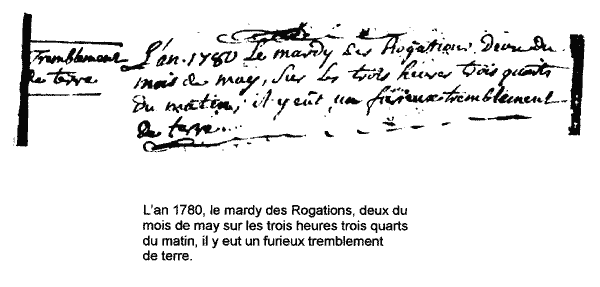 Tremblement
de terre
L'an 1780 Le mardy des Rogations, deux du
mois de may, sur les trois heures trois quarts
du matin, il y eût un furieux tremblement
de terre.
L'an 1780, le mardy des Rogations, deux du
mois de may sur les trois heures trois quarts
du matin, il y eut un furieux tremblement
de terre.